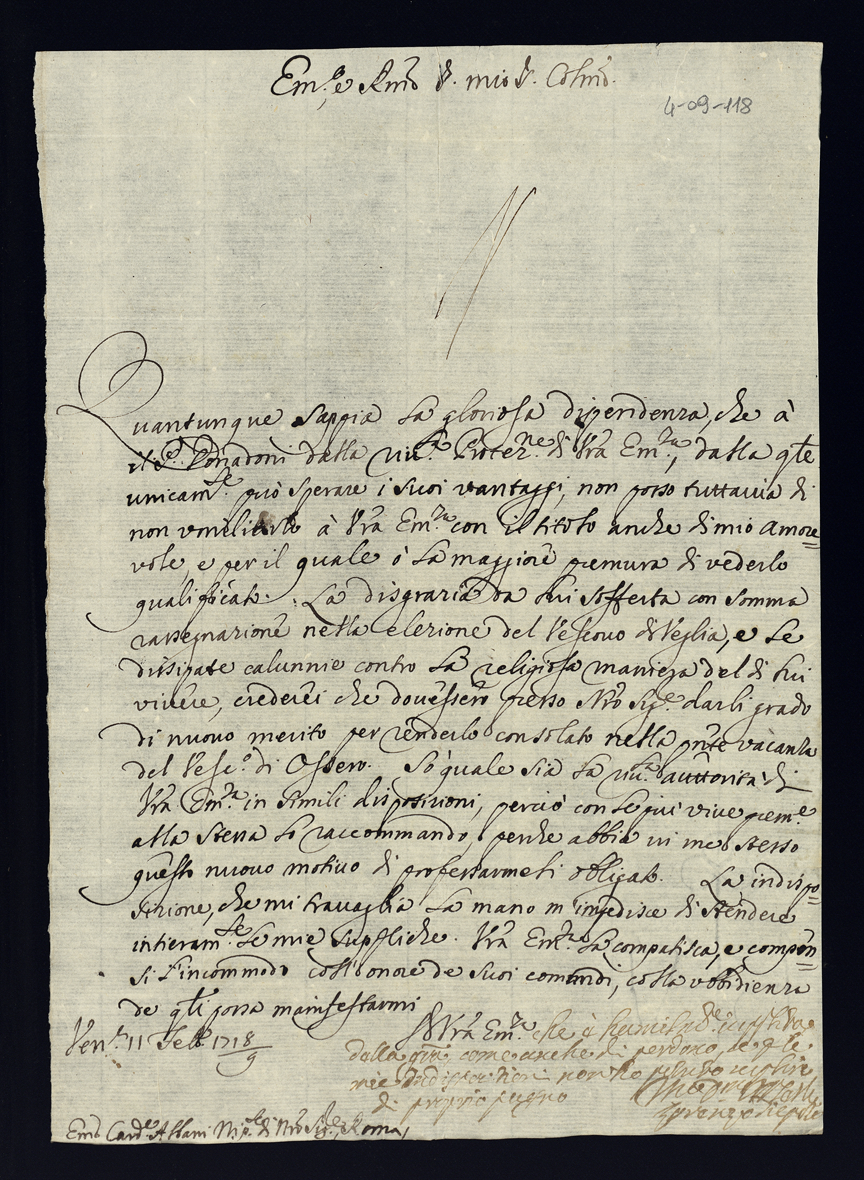 Em.^e e Rmo S. mio S. Colmo.
4-09-118
Quantunque sappia la gloriosa dipendenza, che à
il S.^r dalla Proter.^ne di Vrã Em.^za, dalla qle
unicam.^te può sperare i suoi vantaggi, non posso tuttavia di
non umiliarlo à Vrã Em.^za con il titolo anche di mio amore=
vole, e per il quale ò la maggiore premura di vederlo
qualificato. La disgrazia da lui sofferta con somma
rassegnazione nella elezione del Vescovo di Veglia, e le
dissipate calunnie contro la religiosa maniera del di lui
vivere, crederei che dovessero presso Nro Sig.^e darli grado
di nuovo merito per renderlo consolato nella pnte vacanza
del Vesc.^o di Ossero. Sò quale sia la auttorità di
Vrã Em.^za in simili disposizioni, perciò con le più vive prem.^e
alla stessa lo raccommando, perche abbia in me stesso
questo nuovo motivo di professarmeli obligato. La indispo=
sizione, che mi travaglia la mano m'impedisce di stendere
intieram.^te le mie suppliche. Vrã Em.^za la compatisca, e compen=
si l'incommodo coll'onore de suoi comandi, colla ubbidienza
de qli possa manifestarmi
Ven.^a 11 Feb.^o 1718/9
D Vrã Em.^za che
dalla come anche di perdono, se q le
mie indisposizioni non ho potuto
di proprio pugno
Lorenzo Tiepolo
Emo Card.^e Albani Nip.^te di Nro Sig.^e Roma